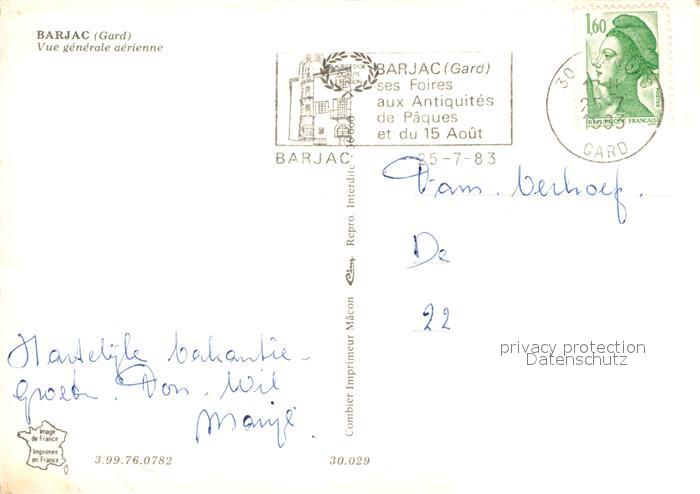 BARJAC (Gard)
Vue générale aérienne
BARJAC (Gard)
ses Foires
aux Antiquités
de Pâques
et du 15 Août
BARJAC 25-7-83
1,60
REPUBLIQUE FRANÇAISE
30
17 H
25-7
1983
GARD
Fam. Verhoef.
De
22
privacy protection
Datenschutz
Hartelijke vakantie-
groeten. Don. Wil
Marijë.
Combier Imprimeur Mâcon Cim Repro. Interdite
Image
de France
Imprimée
en France
3.99.76.0782
30.029